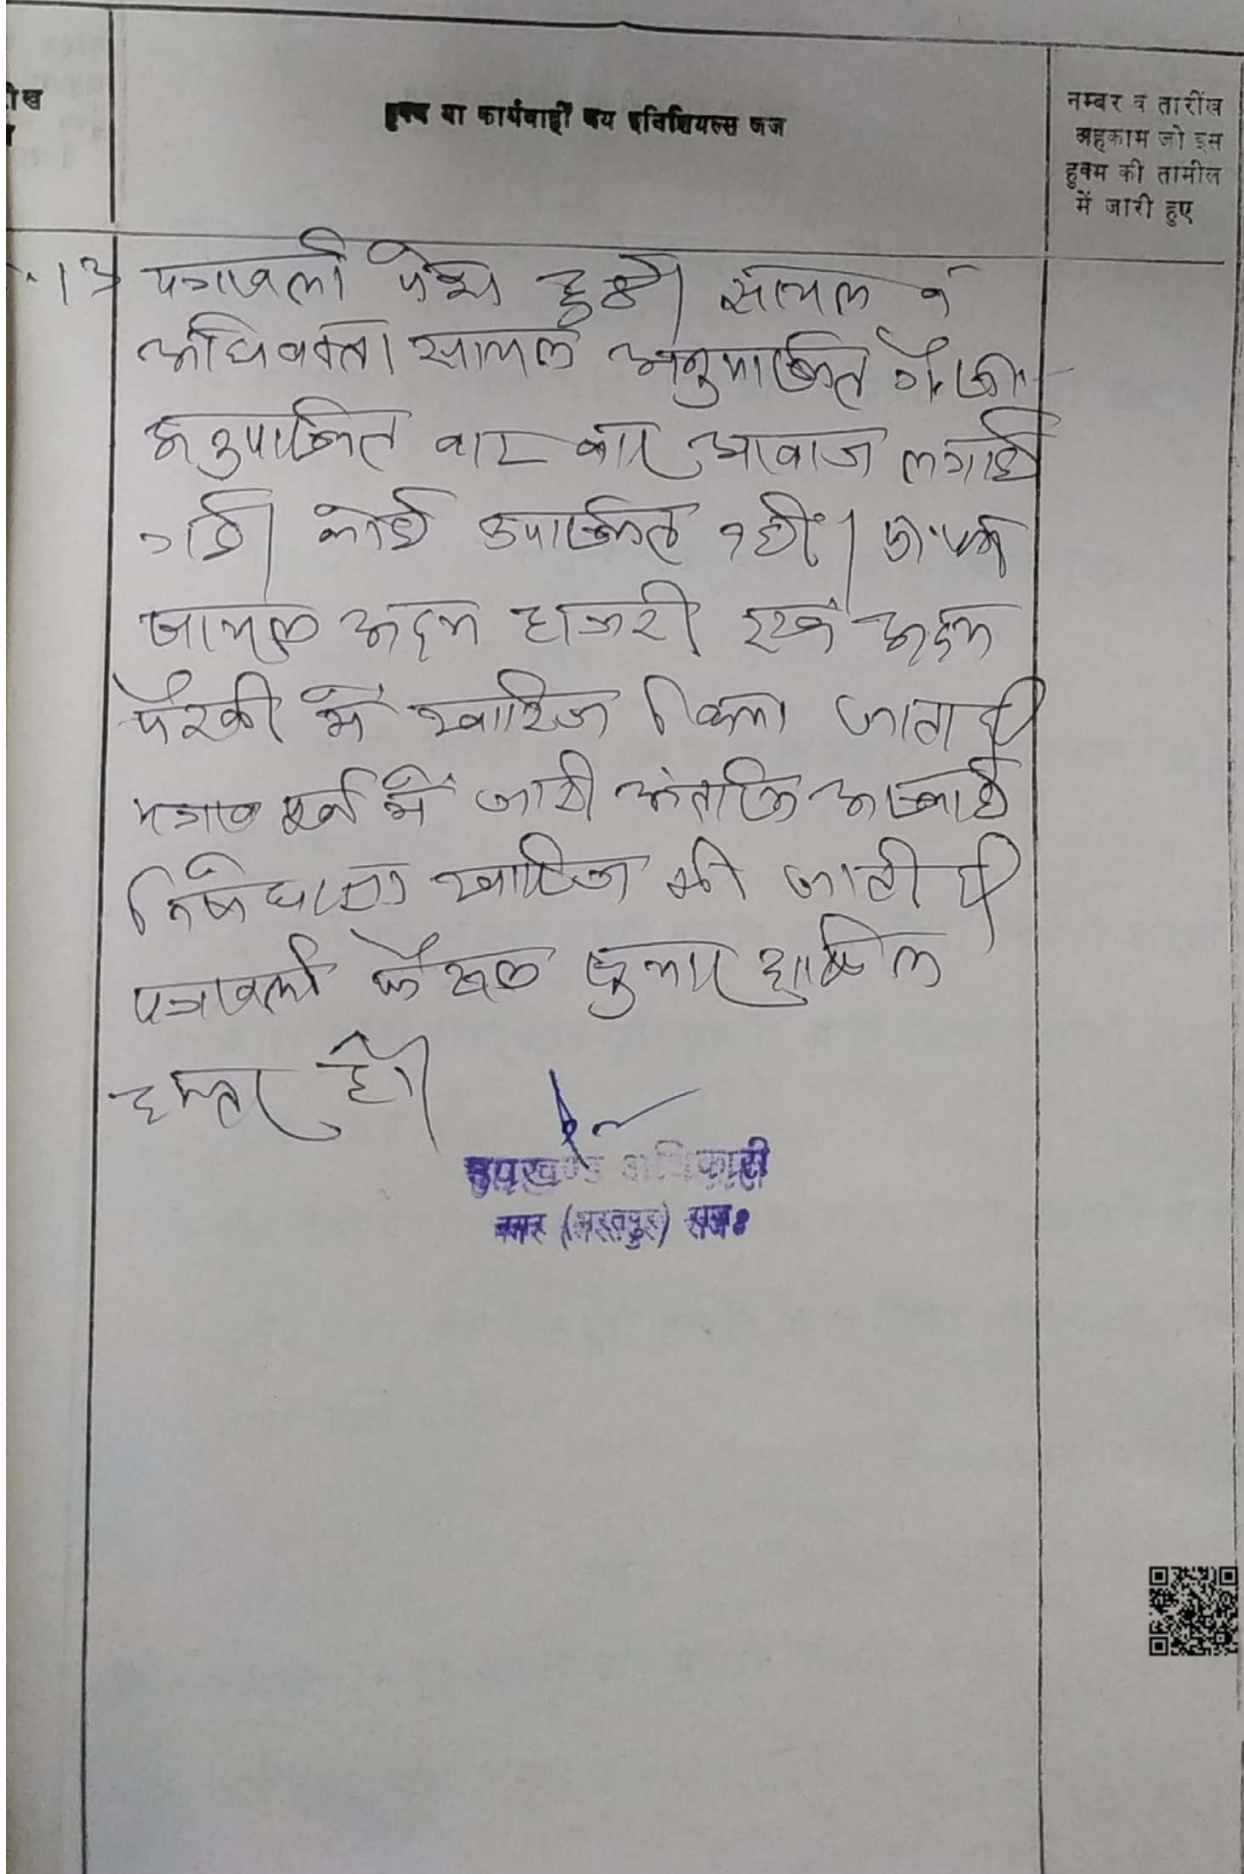 ीख
हुक्म या कार्यवाही मय इनिशियल्स जज
नम्बर व तारीख
अहकाम जो इस
हुक्म की तामील
में जारी हुए
पत्रावली पेश हुई। सायल व
अधिवक्ता सायल अनुपस्थित गै.सा.
अनुपस्थित बार बार आवाज लगाई
गई। कोई उपस्थित नहीं। प्रा.पत्र
सायल अदम हाजरी एवं अदम
पैरवी में खारिज किया जाता है
पूर्व में जारी अंतरिम अस्थाई
निषेधाज्ञा खारिज की जाती है
पत्रावली फैसल शुमार दाखिल
दफ्तर हो।
उपखण्ड अधिकारी
नगर (भरतपुर) राज०